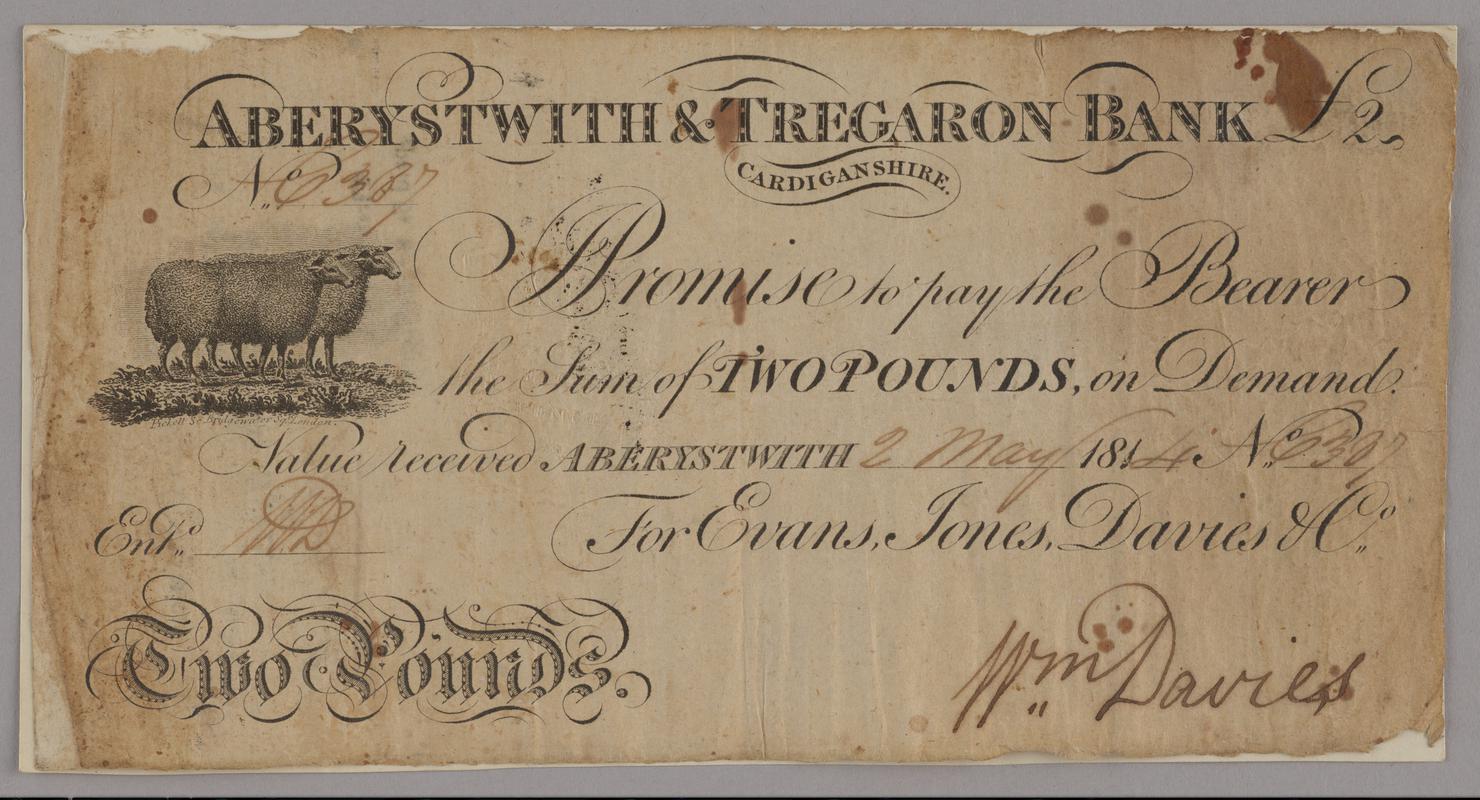 ABERYSTWITH & TREGARON BANK £2.
CARDIGANSHIRE.
No.
I Promise to pay the Bearer
the Sum of TWO POUNDS, on Demand.
Pickett Sc. Bridgewater Sq. London.
Value received ABERYSTWITH 2 May 1814 No.
Entd. WD
For Evans, Jones, Davies & Co.
Two Pounds.
Wm Davies